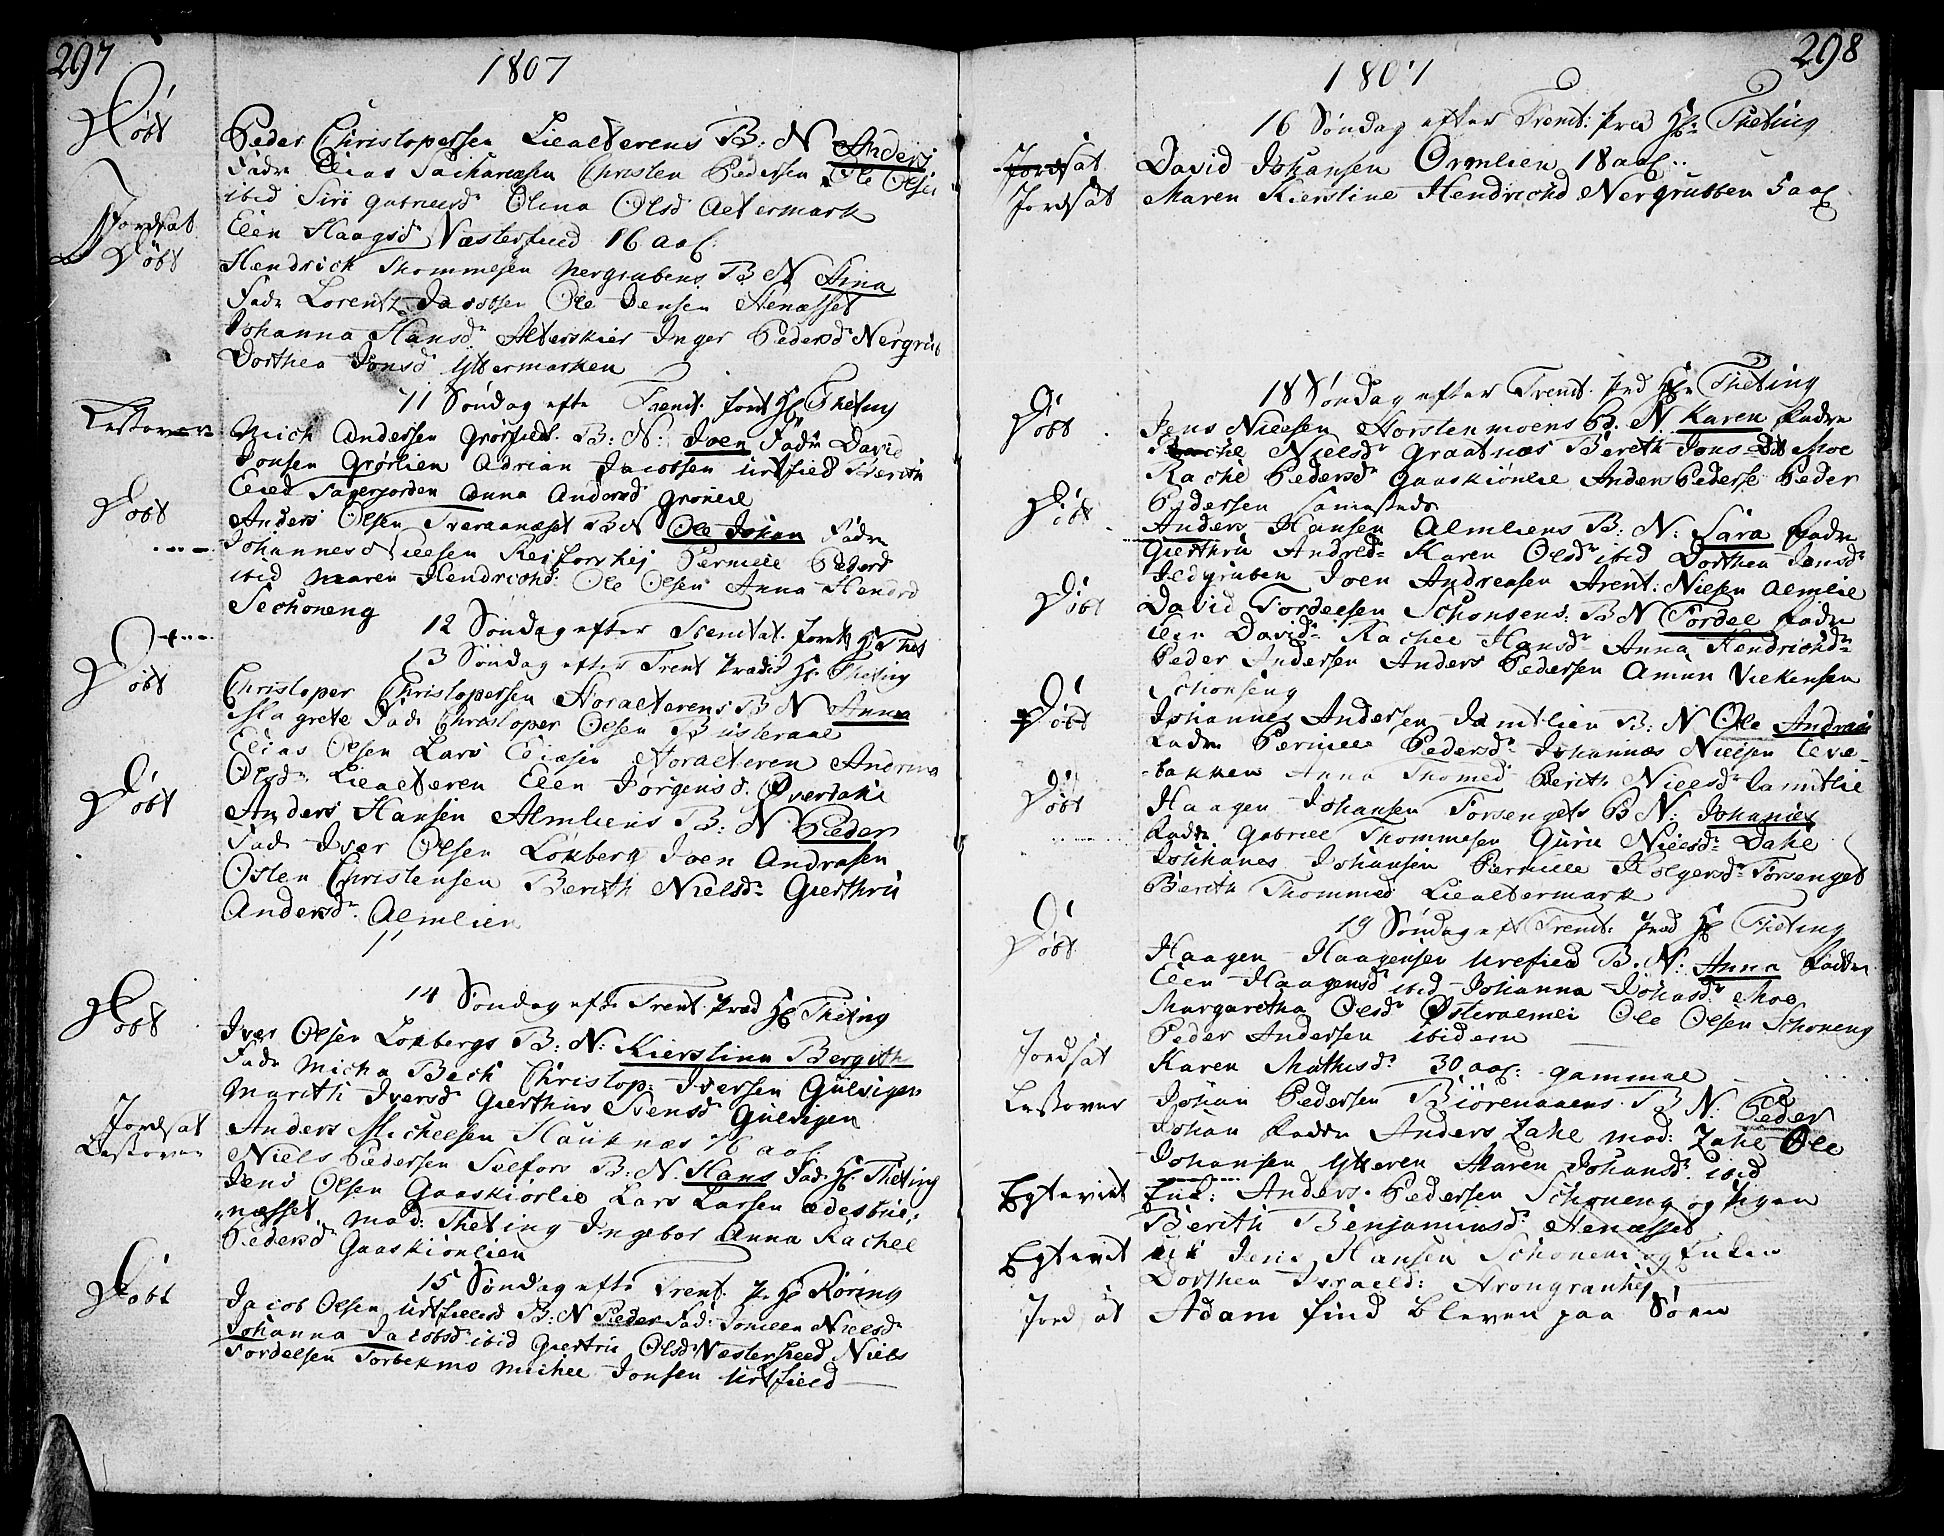 297
1807
Døbt
Peder Christopersen Liealterens B: N Anders
Fadr Elias Sachariæsen Christen Pedersen Ole Olsen
ibid Siri gabrielsd Olina Olsd Altermark
Jordsat
Elen Haagsd Vesterfield 16 aar:
Døbt
Hendrick Thommesen Nergrubens B N Stina
Fadr Lorentz Jacobsen Ole Jensen Stenæsset
Johanna Hansdr Alterskier Inger Pedersdr Nergrub
Dorthea Jonsd Yttermarken
11 Søndag efte Trenit. for Hr Theting
Lestover
Mich Andersen Grørfield. B: N: Joen Fadr David
Jonsen Grørlien Adrian Jacobsen Urtfield Berith
Elied Fagerjorden Anna Andersd Grønlie
Døbt
Anders Olsen Tveraanæset B N Ole Johan Fadr
Johannes Nielsen Reiforshej Pernele Pedersd
ibid Maren Hendrichd: Ole Olsen Anna Hendrd
Schoneng
12 Søndag efter Trenitat. for Hr Thet
13 Søndag efter Trent Prædid Hr Theting
Døbt
Christoper Christopersen Noralterens B N Anna
Magrete Fadr Christoper Olsen Busteraae
Elias Olsen Lars Eliasen Noralteren Andrina
Olsdr Liealteren Elen Jørgensd. Øvertake
Døbt
Anders Hansen Almliens B: N Peder
Fadr Iver Olsen Løkberg Joen Andrasen
Osten Christensen Berith Nielsdr Gierthru
Andersdr. Almlien
14 Søndag efte Trent. Præd Hr Theting
Døbt
Iver Olsen Løkbergs B: N: Kierstina Bergith
Fadr Micha Bech Christop: Iversen Gulsigen
Marith Iversd Gierthru Svensd Gulsigen
Jordsat
Anders Michelsen Hauknæs aar
Lestover
Niels Pedersen Selfors B: N. Hans Fad: Hr Theting
Jens Olsen Gaaskiørlie Lars Larsen
næsset, Mad: Theting Ingebor Anna Rachel
Pedersd Gaaskiønlien
15 Søndag efte Trent. P Hr Røring
Døbt
Jacob Olsen Urtfields B: N Peder Fad: Nielsdr
Johanna Jacobsd ibid Giertru Olsd Vesterfield Niels
Tordelsen Torbekmo Michel Jonsen Urtfield
298
1807
16 Søndag efter Trenit: Præd Hr Theting
Jordsat
David Johansen Ørmlien 18 aar:
Jordsat
Maren Kierstine Hendrichd Nergrubben 5 aar
18 Søndag efter Trenit. Præd Hr Theting
Døbt
Jens Nielsen Horstenmoens B. N. Karen Fadr
Rachel Nielsdr Graatnæs Berith Jons Dtr Moe
Rachel Pedersd Gaaskiønlie Anders Pederse Peder
Pedersen Samesteds
Døbt
Anders Hansen Almliens B: N: Sara Fadr
Gierthru Andrsdr Karen Olsdr ibid Dorthea Jonsdr
Jldgruben Joen Andreasen Arent: Nielsen Almlie
Døbt
David Tordelsen Schonsens: B N Tordel Fadr
Elen Davidr Rachel Hansdr Anna Hendrichdr
Peder Andersen Anders Pedersen Amun Vickensen
Schonseng
Døbt
Johannes Andersen Jamtlien B: N Ole Andreas
Fadr Pernele Pedersdr Johannes Nielsen Elve-
bakken Anna Thomed Berith Nielsdr Jamtlie
Døbt
Haagen Johansen Forsengets B N: Johanes
Fadr Gabriel Thommesen Guru Nielsdr Dahl
Johhanes Johansen Pernele Holgersdr Forsenget
Berith Thommed Liealtermark
19 Søndag eft Trenit. Præd Hr Theting
Døbt
Haagen Haagensen Urefield B. N: Anna Fadr
Elen Haagensd ibid Johanna Johasdr Moe
Margaretha Olsdr Østeralmli Ole Olsen Schoneng
Peder Andersen ibidem
Jordsat
Karen Mathisdr 30 aar: gammel
Lestover
Johan Pedersen Biørenaaens B N: Peder
Johan Fadr Anders Zahl Mad: Zahl Ole
Johansen Ytteren Maren Johansdr ibid
Egteviet
Enk: Anders. Pedersen Schoneng og Pigen
Berith Benjaminsd Stenæsset
Egteviet
Jens Hansen Schoneng og Enken
Dorthea Israeld: Strongranhej
Jordsat
Adam find bleven paa Søen